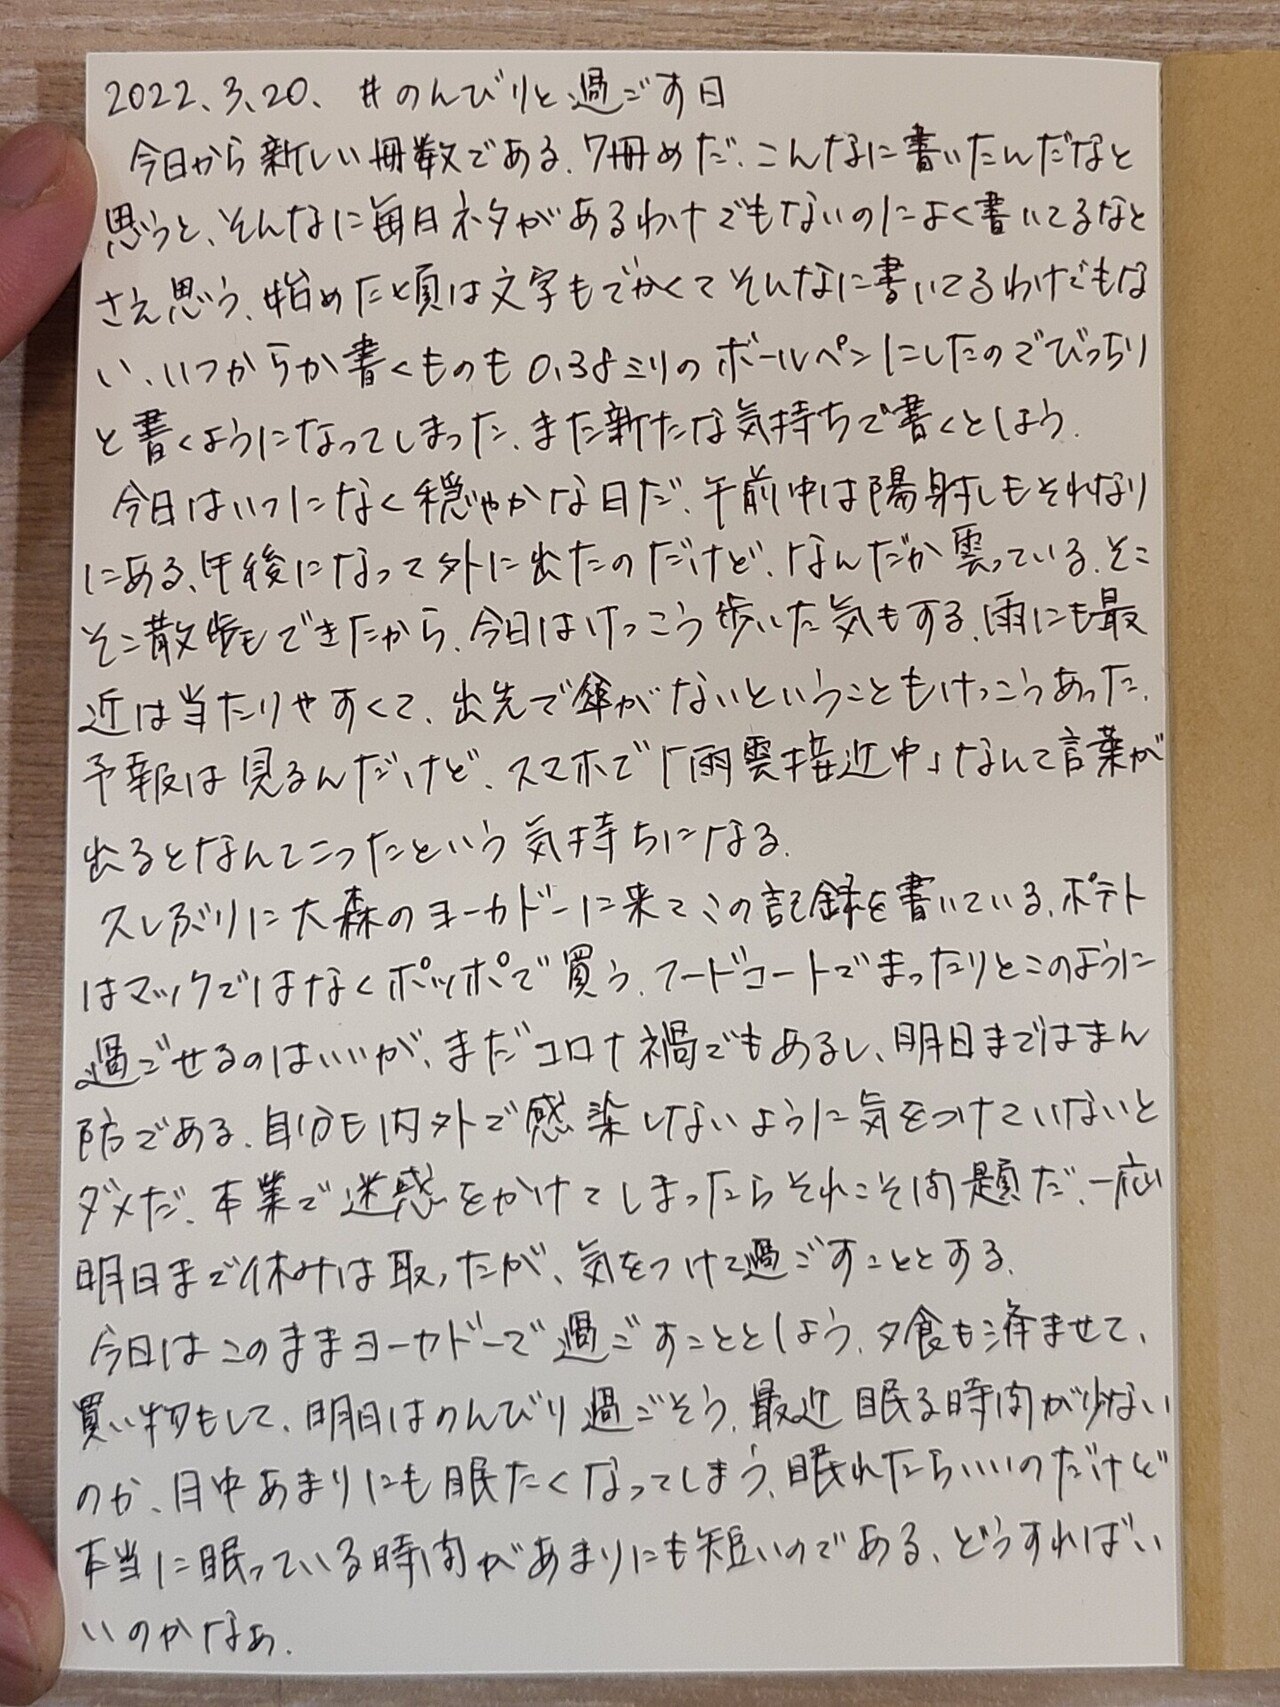 2022、3、20、 #のんびりと過ごす日
今日から新しい冊数である、7冊めだ、こんなに書いたんだなと
思うと、そんなに毎日ネタがあるわけでもないのによく書いてるなと
さえ思う、始めた頃は文字もでかくてそんなに書いてるわけでもな
い、いつからか書くものも0,38ミリのボールペンにしたのでびっちり
と書くようになってしまった、また新たな気持ちで書くとしよう、
今日はいつになく穏やかな日だ、午前中は陽射しもそれなり
にある、午後になって外に出たのだけど、なんだか雲っている、そこ
そこ散歩もできたから、今日はけっこう歩いた気もする、雨にも最
近は当たりやすくて、出先で傘がないということもけっこうあった、
予報は見るんだけど、スマホで「雨雲接近中」なんて言葉が
出るとなんてこったという気持ちになる、
久しぶりに大森のヨーカドーに来てこの記録を書いている、ポテト
はマックではなくポッポで買う、フードコートでまったりとこのように
過ごせるのはいいが、まだコロナ禍でもあるし、明日まではまん
防である、自分も内外で感染しないように気をつけていないと
ダメだ、本業で迷惑をかけてしまったらそれこそ問題だ、一応
明日まで休みは取ったが、気をつけて過ごすこととする、
今日はこのままヨーカドーで過ごすこととしよう、夕食も済ませて、
買い物もして、明日はのんびり過ごそう、最近眠る時間が少ない
のか、日中あまりにも眠たくなってしまう、眠れたらいいのだけど
本当に眠っている時間があまりにも短いのである、どうすればい
いのかなぁ、